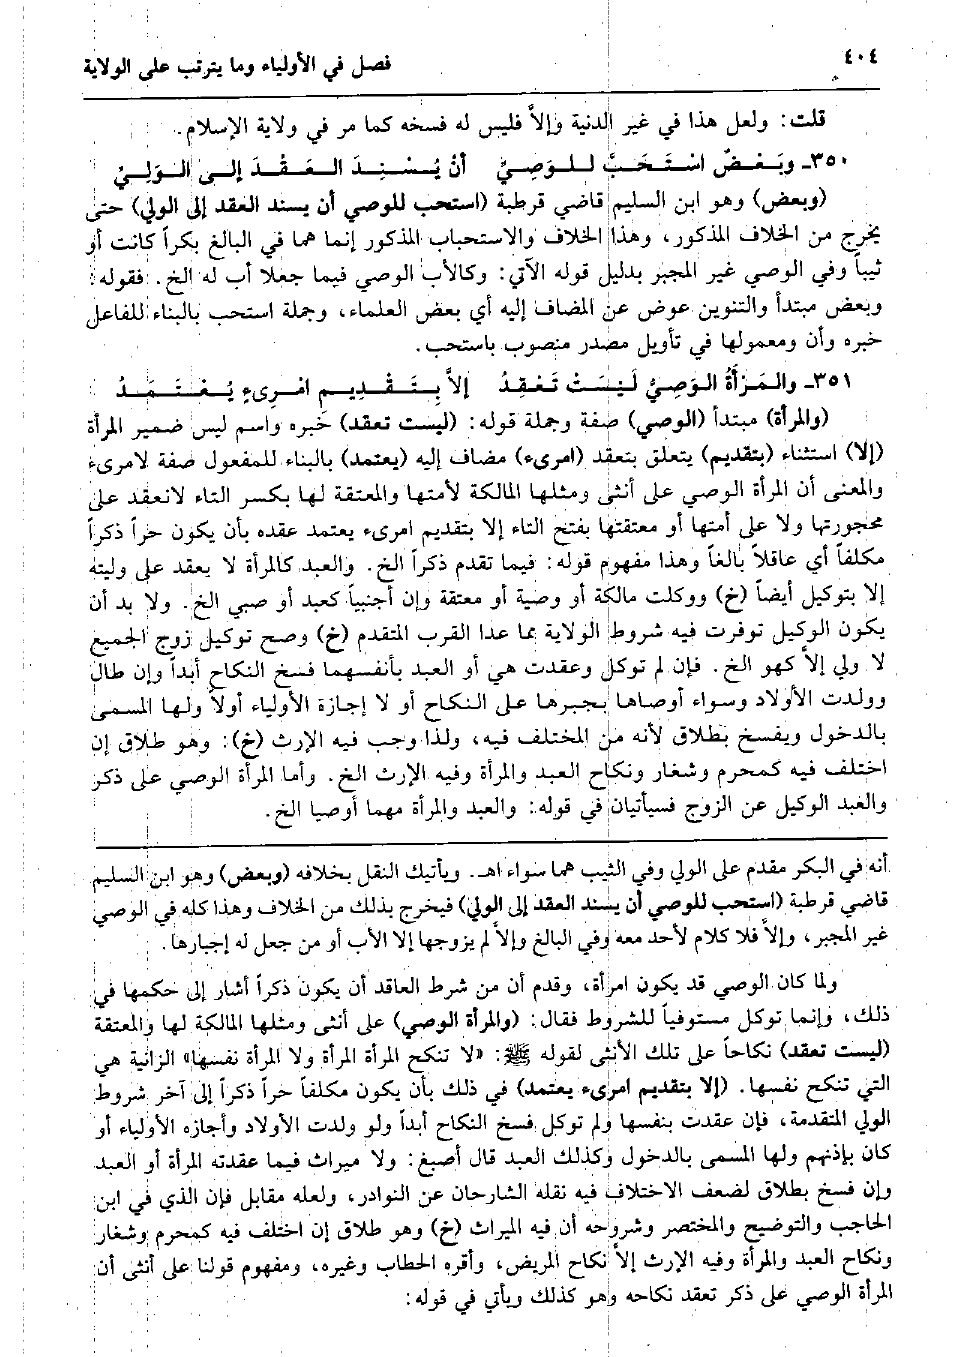 ٤٠٤
فصل في الأولياء وما يترتب على الولاية
قلت: ولعل هذا في غير الدنية وإلاّ فليس له فسخه كما مر في ولاية الإسلام.
٣٥٠ـ وبَعْضٌ اسْتَحَبَّ لِلوَصِيِّ أنْ يُسْنِدَ العَقْدَ إلى الوَلِيِّ
(وبعض) وهو ابن السليم قاضي قرطبة (استحب للوصي أن يسند العقد إلى الولي) حتى
يخرج من الخلاف المذكور، وهذا الخلاف والاستحباب المذكور إنما هما في البالغ بكراً كانت أو
ثيباً وفي الوصي غير المجبر بدليل قوله الآتي: وكالأب الوصي فيما جعلا أب له الخ. فقوله:
وبعض مبتدأ والتنوين عوض عن المضاف إليه أي بعض العلماء، وجملة استحب بالبناء للفاعل
خبره وأن ومعمولها في تأويل مصدر منصوب باستحب.
٣٥١ـ والمَرْأَةُ الوَصِيُّ لَيسَتْ تَعْقِدُ إلاَّ بِتَقْدِيمِ امْرِىءٍ يُعْتَمَدُ
(والمرأة) مبتدأ (الوصي) صفة وجملة قوله: (ليست تعقد) خبره واسم ليس ضمير المرأة
(إلا) استثناء (بتقديم) يتعلق بتعقد (امرىء) مضاف إليه (يعتمد) بالبناء للمفعول صفة لامرىء
والمعنى أن المرأة الوصي على أنثى ومثلها المالكة لأمتها والمعتقة لها بكسر التاء لا تعقد على
محجورتها ولا على أمتها أو معتقتها بفتح التاء إلا بتقديم امرىء يعتمد عقده بأن يكون حراً ذكراً
مكلفاً أي عاقلاً بالغاً وهذا مفهوم قوله: فيما تقدم ذكراً الخ. والعبد كالمرأة لا يعقد على وليته
إلا بتوكيل أيضاً (خ) ووكلت مالكة أو وصية أو معتقة وإن أجنبياً كعبد أو صبي الخ. ولا بد أن
يكون الوكيل توفرت فيه شروط الولاية مما عدا القرب المتقدم (خ) وصح توكيل زوج الجميع
لا ولي إلاّ كهو الخ. فإن لم توكل وعقدت هي أو العبد بأنفسهما فسخ النكاح أبداً وإن طال
وولدت الأولاد وسواء أوصاها بجبرها على النكاح أو لا إجازة الأولياء أولاً ولها المسمى
بالدخول ويفسخ بطلاق لأنه من المختلف فيه، ولذا وجب فيه الإرث (خ): وهو طلاق إن
اختلف فيه كمحرم وشغار ونكاح العبد والمرأة وفيه الإرث الخ. وأما المرأة الوصي على ذكر
والعبد الوكيل عن الزوج فسيأتيان في قوله: والعبد والمرأة مهما أوصيا الخ.
أنه في البكر مقدم على الولي وفي الثيب هما سواء اهـ. ويأتيك النقل بخلافه (وبعض) وهو ابن السليم
قاضي قرطبة (استحب للوصي أن يسند العقد إلى الولي) فيخرج بذلك من الخلاف وهذا كله في الوصي
غير المجبر، وإلاّ فلا كلام لأحد معه وفي البالغ وإلاّ لم يزوجها إلا الأب أو من جعل له إجبارها.
ولما كان الوصي قد يكون امرأة، وقدم أن من شرط العاقد أن يكون ذكراً أشار إلى حكمها في
ذلك، وإنما توكل مستوفياً للشروط فقال: (والمرأة الوصي) على أنثى ومثلها المالكة لها والمعتقة
(ليست تعقد) نكاحاً على تلك الأنثى لقوله ﷺ: «لا تنكح المرأة المرأة ولا المرأة نفسها» الزانية هي
التي تنكح نفسها. (إلا بتقديم امرىء يعتمد) في ذلك بأن يكون مكلفاً حراً ذكراً إلى آخر شروط
الولي المتقدمة، فإن عقدت بنفسها ولم توكل فسخ النكاح أبداً ولو ولدت الأولاد وأجازه الأولياء أو
كان بإذنهم ولها المسمى بالدخول وكذلك العبد قال أصبغ: ولا ميراث فيما عقدته المرأة أو العبد
وإن فسخ بطلاق لضعف الاختلاف فيه نقله الشارحان عن النوادر، ولعله مقابل فإن الذي في ابن
الحاجب والتوضيح والمختصر وشروحه أن فيه الميراث (خ) وهو طلاق إن اختلف فيه كمحرم وشغار
ونكاح العبد والمرأة وفيه الإرث إلاّ نكاح المريض، وأقره الحطاب وغيره، ومفهوم قولنا على أنثى أن
المرأة الوصي على ذكر تعقد نكاحه وهو كذلك ويأتي في قوله: